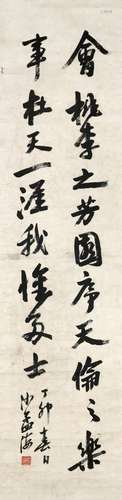 會桃李之芳園序天倫之樂
事天一涯我多士
丁卯春日
沙孟海